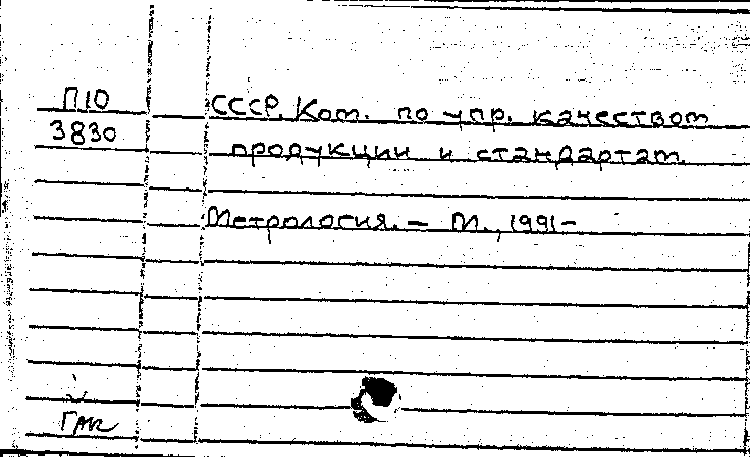 П10
СССР. Ком. по упр. качеством
3830
продукции и стандартам.
Метрология. — М., 1991-